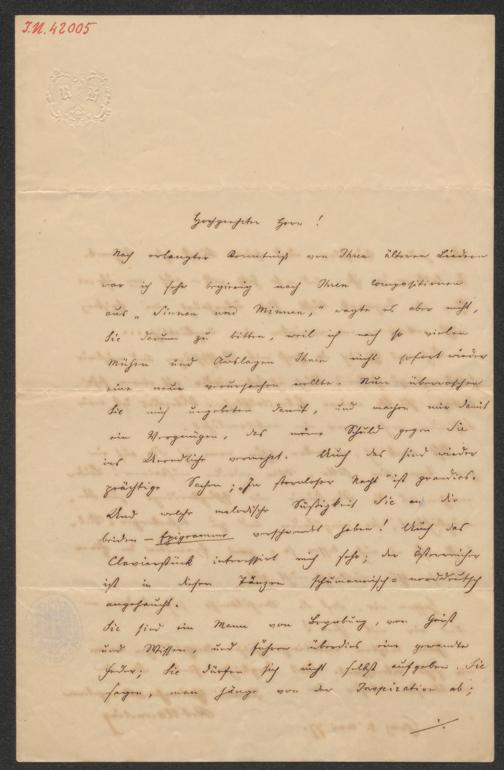 I.N. 42005
Hochgeehrter Herr!
Nach erlangter Kenntniß von Ihren älteren Liedern
war ich sehr begierig nach Ihren Compositionen
aus „Sinnen und Minnen," wagte es aber nicht,
Sie darum zu bitten, weil ich nach so vielen
Mühen und Auslagen Ihnen nicht sofort wieder
eine neue verursachen wollte. Nun überraschen
Sie mich ungebeten damit, und machen mir damit
ein Vergnügen, das meine Schuld gegen Sie
ins Unendliche vermehrt. Auch das sind wieder
prächtige Sachen; „In sternloser Nacht" ist grandios.
Und welche melodische Süßigkeit Sie an die
beiden – Epigramme verschwendet haben! Auch das
Clavierstück interessirt mich sehr; der Österreicher
ist in diesen Tänzen schumannisch-norddeutsch
angehaucht.
Sie sind ein Mann von Begabung, von Geist
und Wissen, und führen überdies eine gewandte
Feder; Sie dürfen sich nicht selbst aufgeben. Sie
sagen, man hänge von der Inspiration ab;
./.